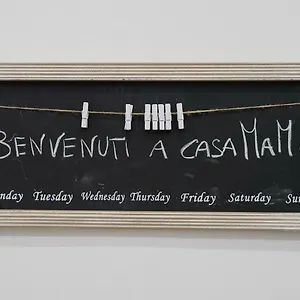 BENVENUTI A CASA MAM
nday Tuesday Wednesday Thursday Friday Saturday Su